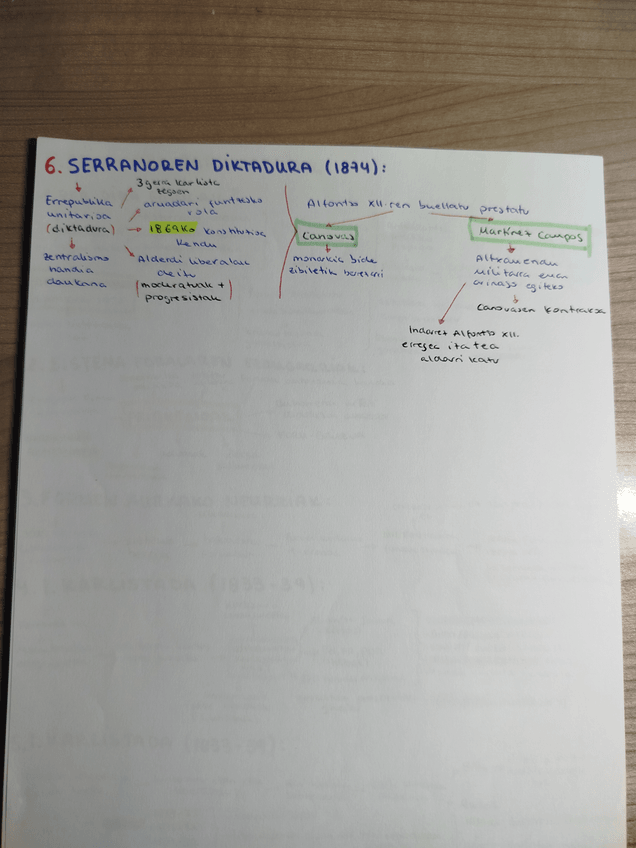 6. SERRANOREN DIKTADURA (1874):
Errepublika
unitarioa
(diktadura)
zentralismo
handia
daukana
3 gerra karlista
arundari funtsezko
rola
1869ko konstituzioa
kendu
Alderdi liberalak
deitu
(moderatuak +
progresistak)
Alfontso XII.ren bueltatu prestatu
Canovas
monarkia bide
zibiletik berezarri
Martinez Campos
Altxamendu
militarra eman
arinago egiteko
Canovasen kontrakoa
Indarrez Alfontso XII.
erregea izatea
aldarrikatu